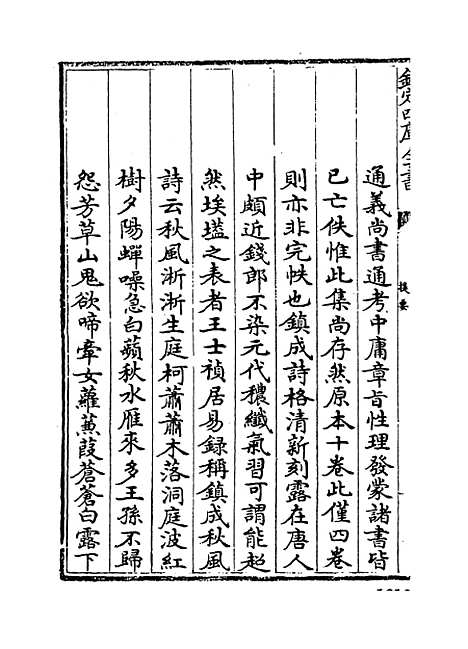 欽定四庫全書
提要
通義尚書通考中庸章旨性理發蒙諸書皆
已亡佚惟此集尚存然原本十卷此僅四卷
則亦非完帙也鎮成詩格清新刻露在唐人
中頗近錢郎不染元代穠纖氣習可謂能超
然埃壒之表者王士禎居易録稱鎮成秋風
詩云秋風淅淅生庭柯蕭蕭木落洞庭波紅
樹夕陽蟬噪急白蘋秋水雁來多王孫不歸
怨芳草山鬼欲啼牽女蘿蒹葭蒼蒼白露下